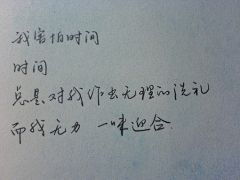 我害怕时间
时间
总是对我作出无理的洗礼
而我无力 一味迎合